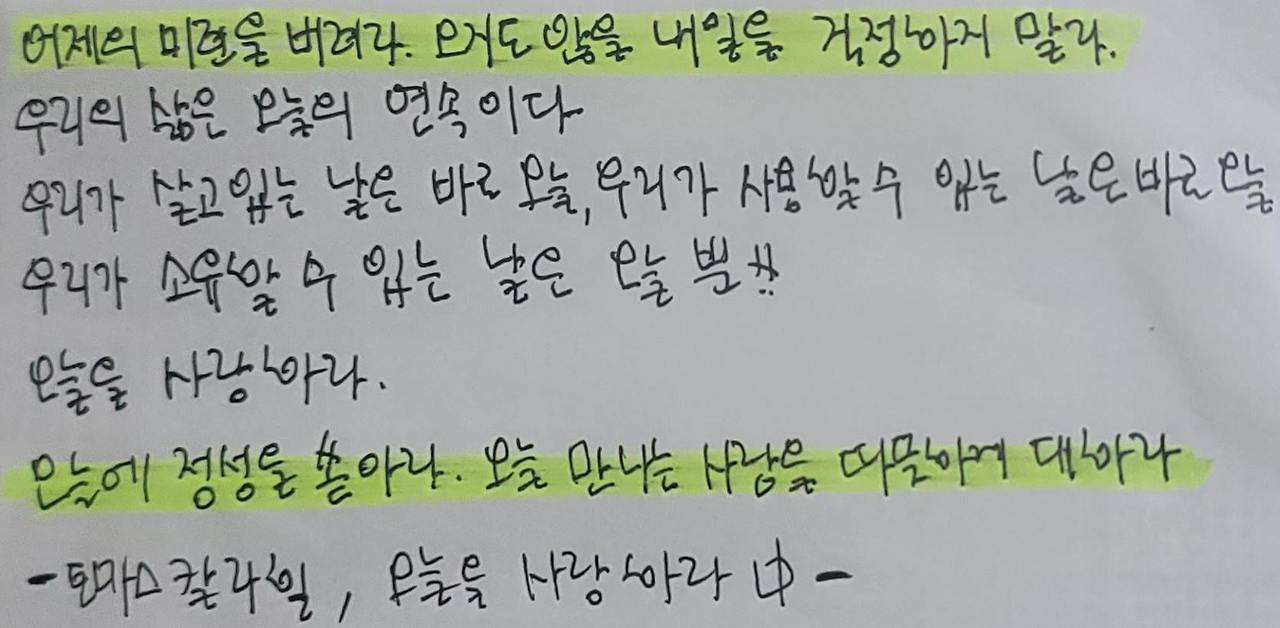 어제의 미련을 버려라. 오지도 않을 내일을 걱정하지 말라.
우리의 삶은 오늘의 연속이다
우리가 살고있는 날은 바로 오늘, 우리가 사용할 수 있는 날은 바로 오늘
우리가 소유할 수 있는 날은 오늘 뿐!!
오늘을 사랑하라.
오늘에 정성을 쏟아라. 오늘 만나는 사람을 따뜻하게 대하라
- 토마스 칼라일, 오늘을 사랑하라 中 -